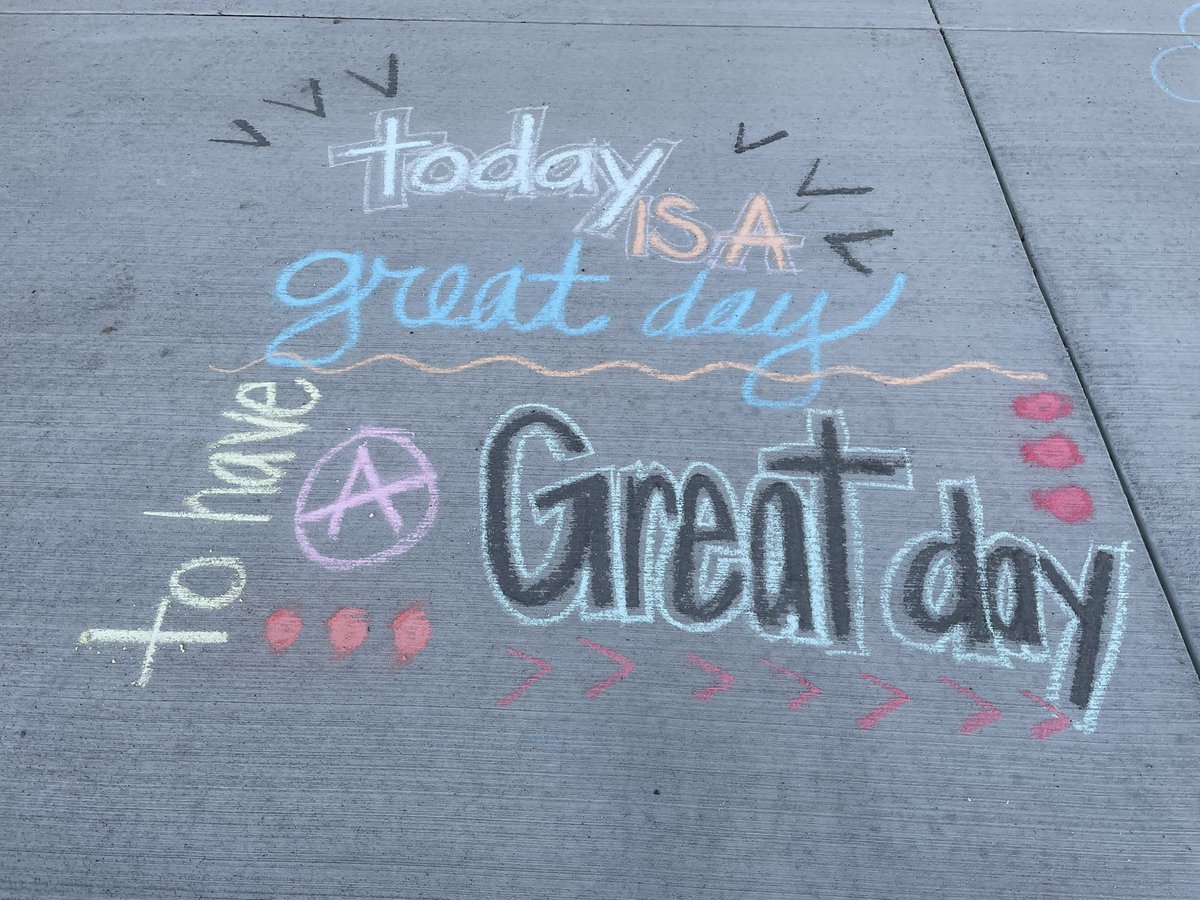 today
IS A
great day
to have
A
Great day